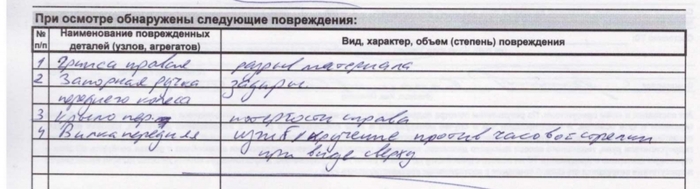 При осмотре обнаружены следующие повреждения:
№ п/п Наименование поврежденных деталей (узлов, агрегатов) Вид, характер, объем (степень) повреждения
1 Грипса правая разрыв материала
2 Запорная ручка задиры
переднего колеса
3 Крыло пер. потертости справа
4 Вилка передняя изгиб/кручение против часовой стрелки
при виде сверху